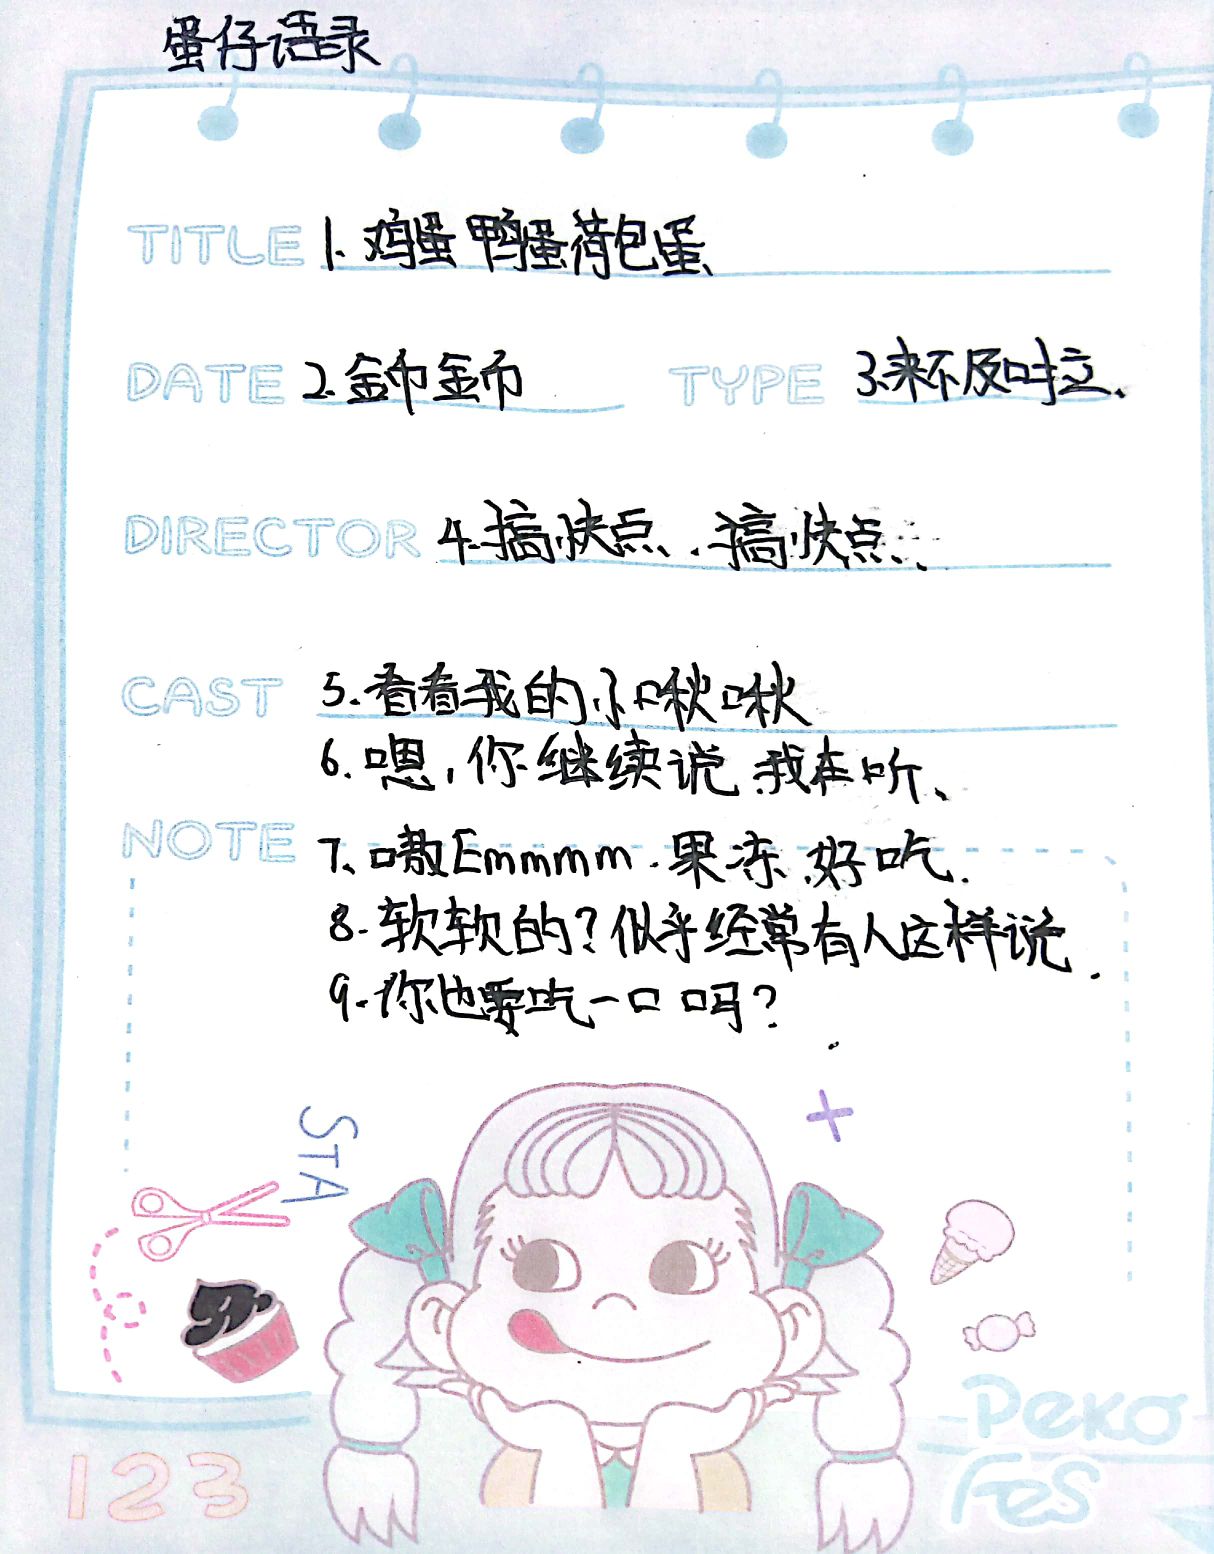 蛋仔语录
TITLE 1.鸡蛋 鸭蛋荷包蛋、
DATE 2.金币金币 TYPE 3.来不及啦、
DIRECTOR 4.搞快点、.搞快点、、
CAST 5.看看我的小啾啾
6.嗯,你继续说 我在听、
NOTE 7、嗷Emmmm.果冻.好吃.
8.软软的?似乎经常有人这样说.
9.你也要吃一口吗?
STA
Peko
Fes
123